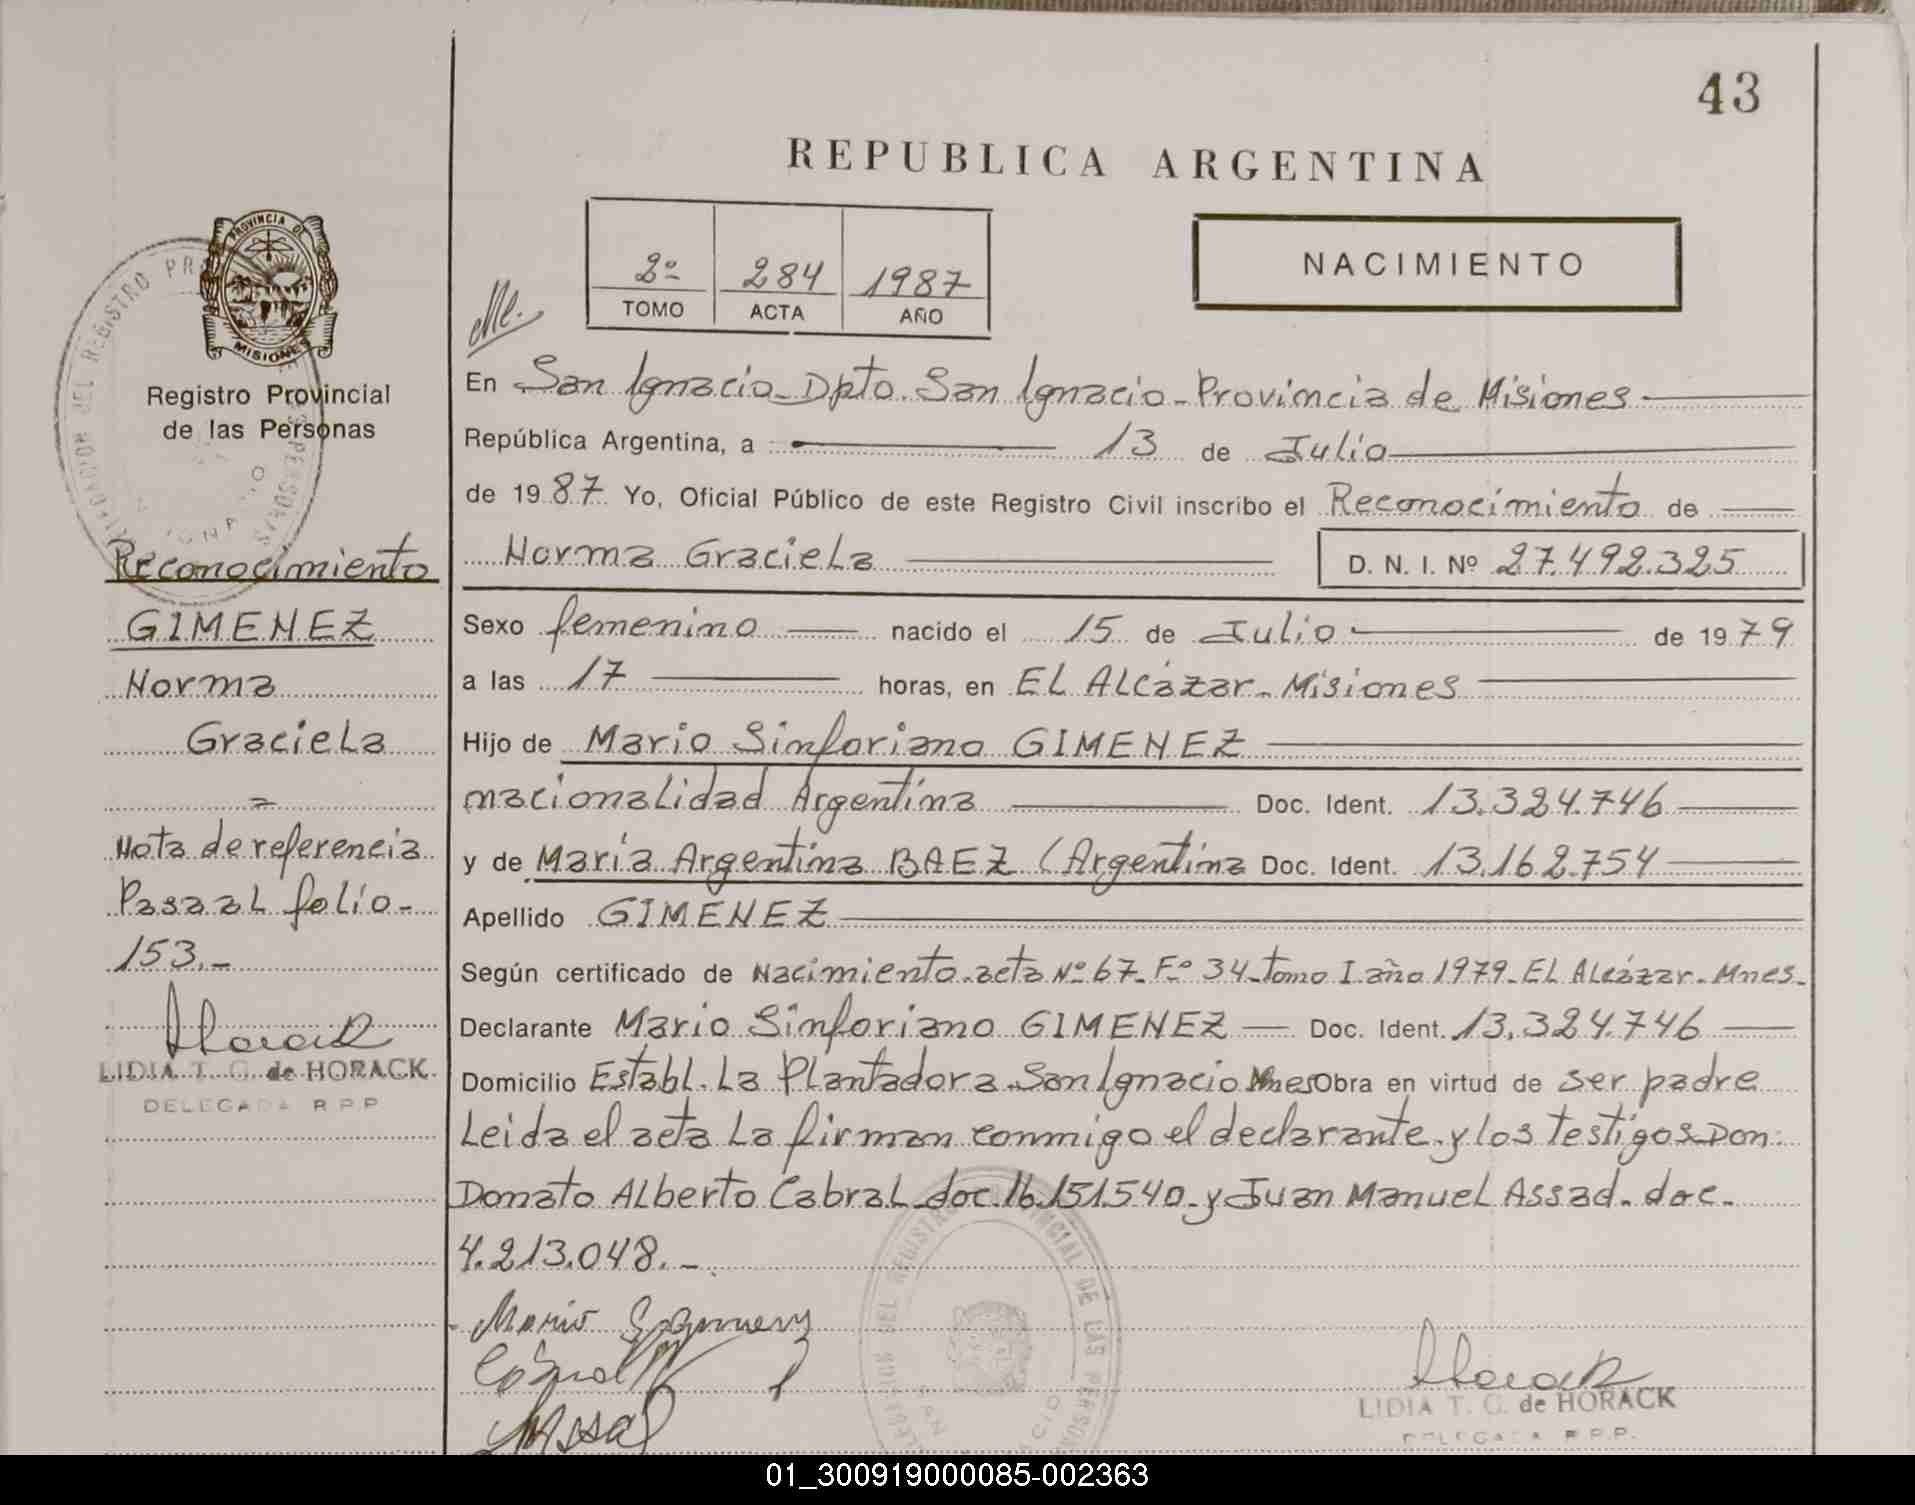 43
REPUBLICA ARGENTINA
PROVINCIA DE
MISIONES
2º 284 1987
TOMO ACTA AÑO
NACIMIENTO
Registro Provincial
de las Personas
En San Ignacio - Dpto. San Ignacio - Provincia de Misiones
República Argentina, a 13 de Julio
de 1987 Yo, Oficial Público de este Registro Civil inscribo el Reconocimiento de
Norma Graciela D. N. I. Nº 27.492.325
Sexo femenino nacido el 15 de Julio de 1979
a las 17 horas, en El Alcázar - Misiones
Hijo de Mario Sinforiano GIMENEZ
nacionalidad Argentina Doc. Ident. 13.324.746
y de María Argentina BAEZ (Argentina Doc. Ident. 13.162.754
Apellido GIMENEZ
Según certificado de Nacimiento - acta Nº 67 - Fº 34 - tomo I. año 1979 - El Alcázar - Mnes.
Declarante Mario Sinforiano GIMENEZ Doc. Ident. 13.324.746
Domicilio Establ. La Plantadora - San Ignacio Mnes Obra en virtud de ser padre
Leida el acta la firman conmigo el declarante y los testigos Don:
Donato Alberto Cabral - doc. 16.151.540 - y Juan Manuel Assad - doc.
4.213.048. -
Reconocimiento
GIMENEZ
Norma
Graciela
=
Nota de referencia
Pasa al folio -
153. -
LIDIA T. G. de HORACK
DELEGADA R.P.P
LIDIA T. G. de HORACK
DELEGADA R.P.P.
01_300919000085-002363